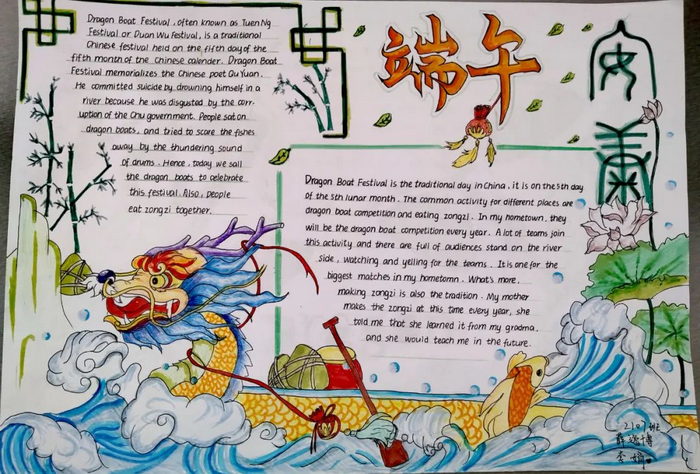 Dragon Boat Festival, often known as Tuen Ng
Festival or Duan Wu Festival, is a traditional
Chinese festival held on the fifth day of the
fifth month of the Chinese calender. Dragon Boat
Festival memorializes the Chinese poet Qu Yuan.
He committed suicide by drowning himself in a
river because he was disgusted by the corr-
uption of the Chu government. People sat on
dragon boats, and tried to scare the fishes
away by the thundering sound
of drums. Hence, today we sail
the dragon boats to celebrate
this festival. Also, people
eat zongzi together.
端午
安康
Dragon Boat Festival is the traditional day in China, it is on the 5th day
of the 5th lunar month. The common activity for different places are
dragon boat competition and eating zongzi. In my hometown, they
will be the dragon boat competition every year. A lot of teams join
this activity and there are full of audiences stand on the river
side, watching and yelling for the teams. It is one for the
biggest matches in my hometomn. What's more,
making zongzi is also the tradition. My mother
makes the zongzi at this time every year, she
told me that she learned it from my gradma,
and she would teach me in the future.
2101班